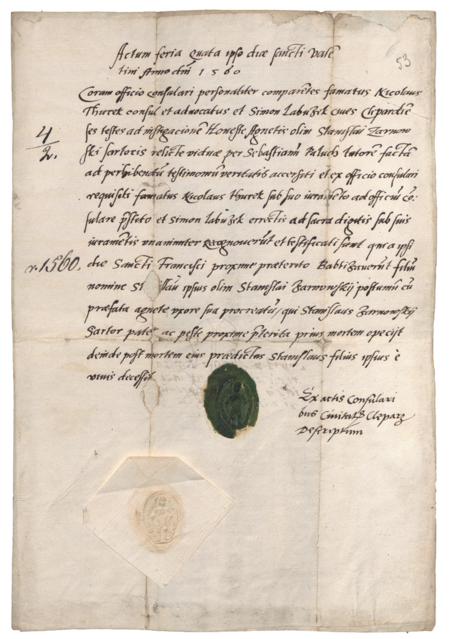 53
Actum feria Quata ipso die sancti Vale
tini Anno dni 1560
Coram officio consulari personaliter comparētes famatus Nicolaus
Thurek consul et advocatus et Simon Labužek cives Clepardiē
ses testes ad instigacionē Honeste Agnetis olim Stanislai Zarnow
4/2.
ski sartoris relicte vidue per Sebastianū tutorē factā
ad perhibendū testimoniū veritatis accersiti et ex officio consulari
requisiti famatus Nicolaus Thurek sub suo iuramēto ad officiū cō
sulare p̄stito et Simon Labužek erectis ad sacra digitis sub suis
iuramētis unanimiter recognoverūt et testificati sunt quia ipsi
r. 1560.
die Sancti Francisci proxime præterito Babtizaverūt filiū
nomine ipsius olim Stanislai Zarnowskij postumū cū
præfata agnete uxore sua procreatū, qui Stanislaus Zarnowskij
Sartor pater ac peste proxime p̄terita prius mortem
deinde post mortem eius prædictus Stanislaus filius ipsius è
vivis decessit
Ex actis Consulari
bus Civitatis Cleparz
Descriptum